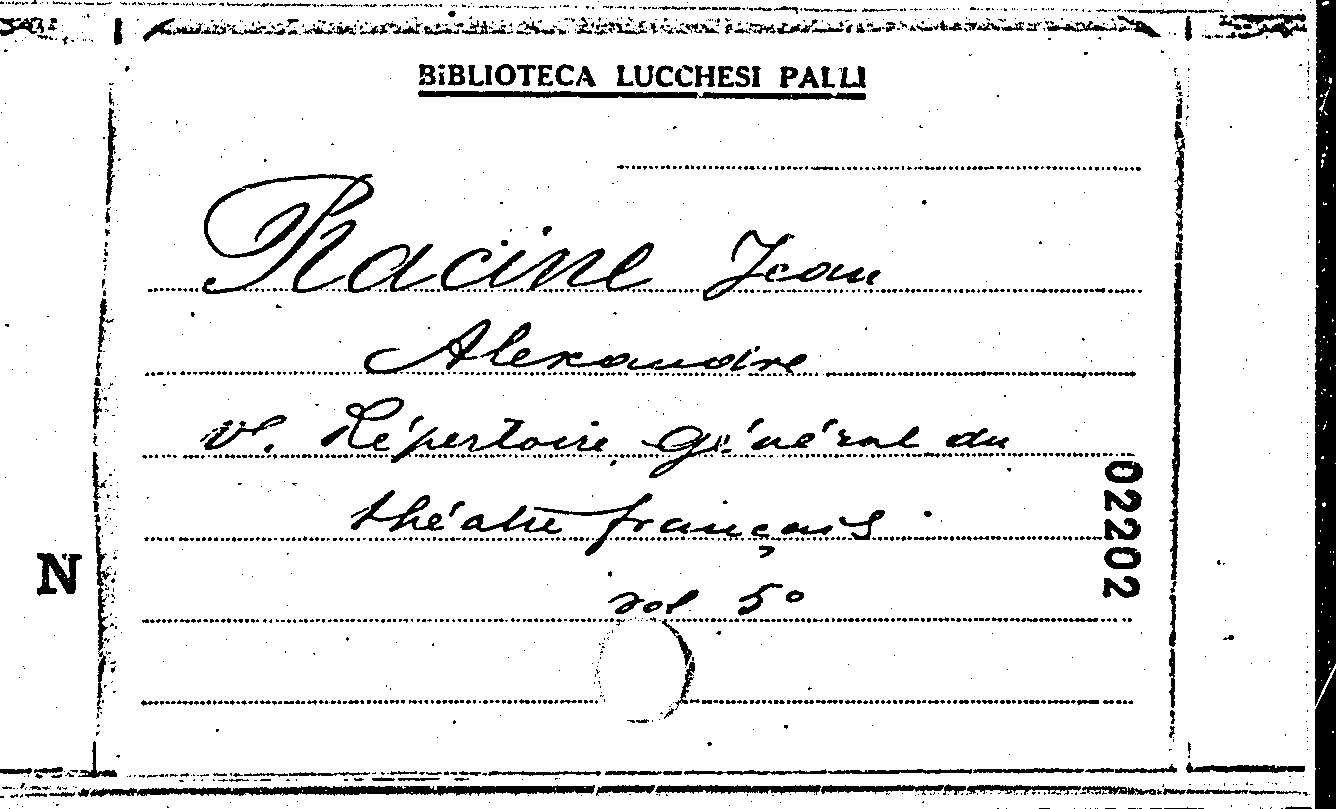 BIBLIOTECA LUCCHESI PALLI
Racine Jean
Alexandre
vl. Répertoire Général du
théatre français
vol 5°
02202
N